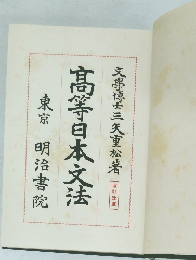 文學博士三矢重松著
高等日本文法
東京 明治書院